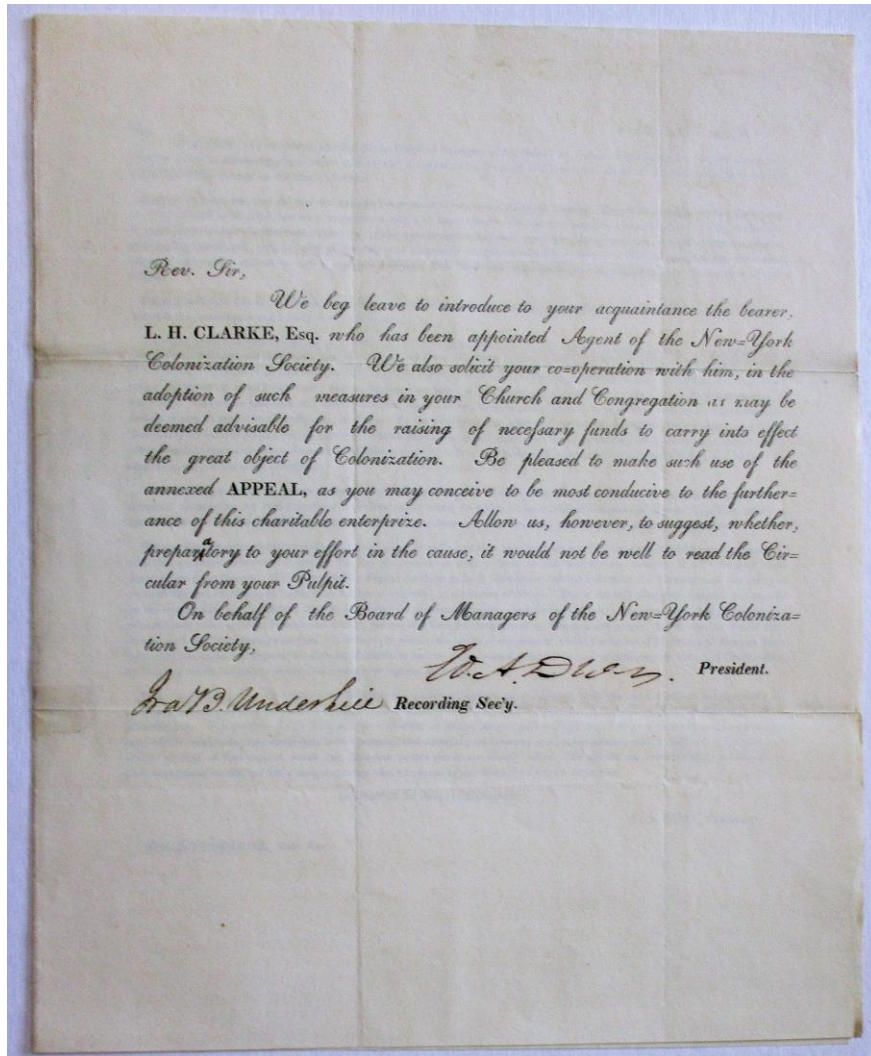 Rev. Sir,
We beg leave to introduce to your acquaintance the bearer,
L. H. CLARKE, Esq. who has been appointed Agent of the New=York
Colonization Society. We also solicit your co=operation with him, in the
adoption of such measures in your Church and Congregation as may be
deemed advisable for the raising of neceſsary funds to carry into effect
the great object of Colonization. Be pleased to make such use of the
annexed APPEAL, as you may conceive to be most conducive to the further=
ance of this charitable enterprize. Allow us, however, to suggest, whether,
preparatory to your effort in the cause, it would not be well to read the Cir=
cular from your Pulpit.
On behalf of the Board of Managers of the New=York Coloniza=
tion Society,
W. A. Duer. President.
Ira B. Underhill Recording Sec'y.